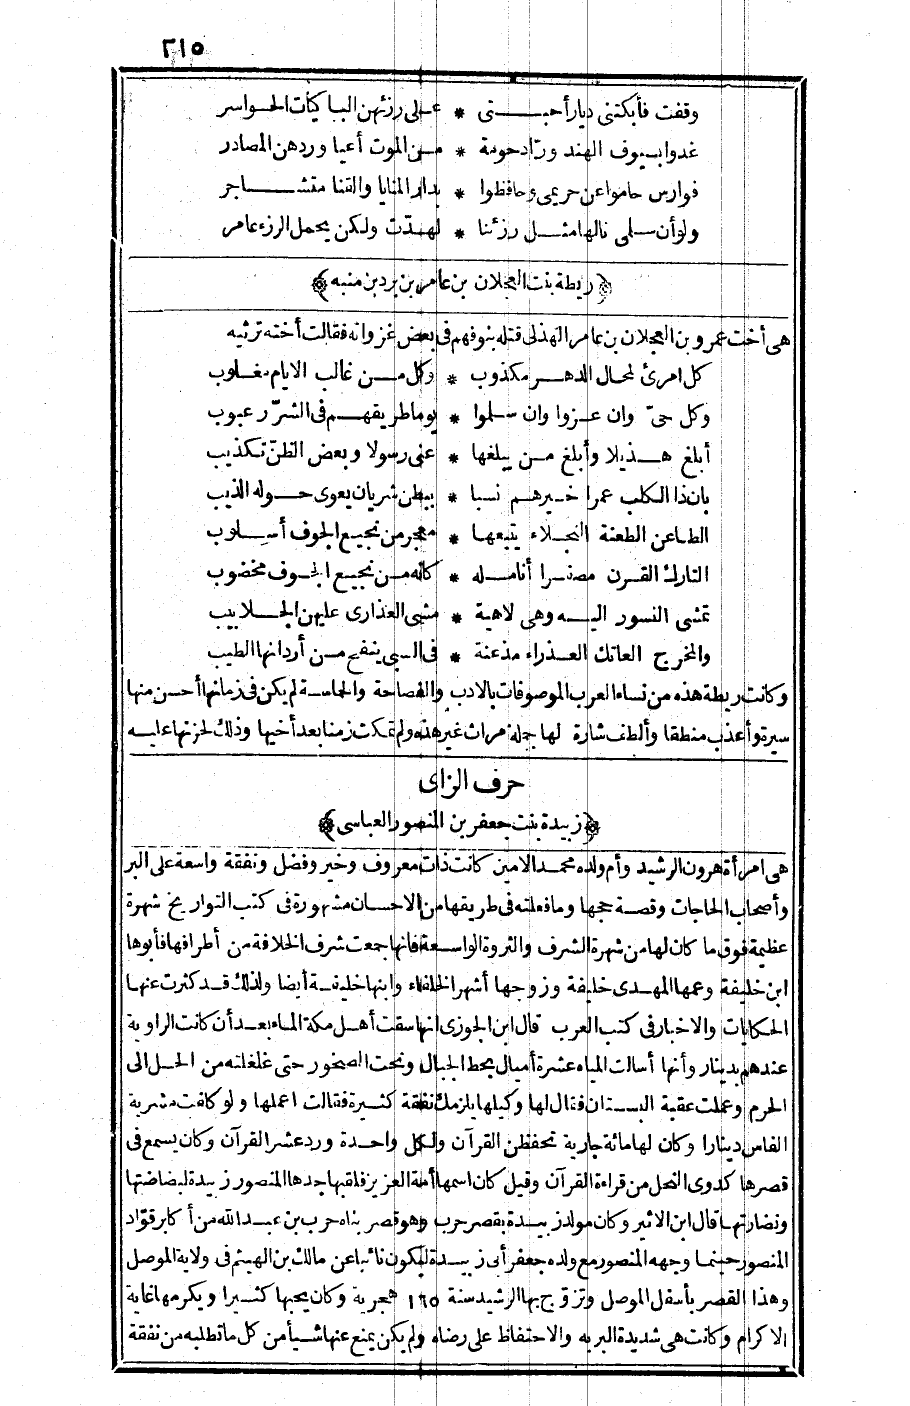 ٢١٥
وقفت فأبكتنى ديار أحبتى * على رزئهن الباكيات الحواسر
غدوا بسيوف الهند وراد حومة * من الموت أعيا وردهن المصادر
فوارس حاموا عن حريمى وحافظوا * بدار المنايا والقنا متشاجر
ولو أن سلمى نالها مثل رزئنا * لهدت ولكن يحمل الرزء عامر
﴿ريطة بنت العجلان بن عامر بن برد بن منبه﴾
هى أخت عمرو بن العجلان بن عامر الهذلى قتله بنو فهم فى بعض غزواته فقالت أخته ترثيه
كل امرئ لمحال الدهر مكذوب * وكل من غالب الايام مغلوب
وكل حىّ وان عزوا وان سلموا * يوما طريقهم فى الشرّ رعبوب
أبلغ هذيلا وأبلغ من يبلغها * عنى رسولا وبعض الظنّ تكذيب
بان ذا الكلب عمرا خيرهم نسبا * ببطن شريان يعوى حوله الذيب
الطاعن الطعنة النجلاء يتبعها * مثعجر من نجيع الجوف أسلوب
التارك القرن مصفرا أنامله * كأنه من نجيع الجوف مخضوب
تمشى النسور اليه وهى لاهية * مشى العذارى عليهن الجلابيب
والمخرج العاتك العذراء مذعنة * فى السبى ينفح من أردانها الطيب
وكانت ريطة هذه من نساء العرب الموصوفات بالادب والفصاحة والحاسة لم يكن فى زمانها أحسن منها
سيرة وأعذب منطقا وألطف شارة لها جملة مراث غير هذه ولم تمكث زمنا بعد أخيها وذلك لحزنها عليه
حرف الزاى
﴿زبيدة بنت جعفر بن المنصور العباسى﴾
هى امرأة هرون الرشيد وأم ولده محمد الامين كانت ذات معروف وخير وفضل ونفقة واسعة على البر
وأصحاب الحاجات وقصة حجها وما فعلته فى طريقها من الاحسان مشهورة فى كتب التواريخ شهرة
عظيمة فوق ما كان لها من شهرة الشرف والثروة الواسعة فانها جمعت شرف الخلافة من أطرافها فأبوها
ابن خليفة وعمها المهدى خليفة وزوجها أشهر الخلفاء وابنها خليفة أيضا ولذلك قد كثرت عنها
الحكايات والاخبار فى كتب العرب قال ابن الجوزى انها سقت أهل مكة الماء بعد أن كانت الراوية
عندهم بدينار وأنها أسالت المياه عشرة أميال بحط الجبال ونحت الصخور حتى غلغلته من الحل الى
الحرم وعملت عقبة البستان فقال لها وكيلها يلزمك نفقة كثيرة فقالت اعملها ولو كانت ضربة
الفاس دينارا وكان لها مائة جارية تحفظن القرآن ولكل واحدة ورد عشر القرآن وكان يسمع فى
قصرها كدوى النحل من قراءة القرآن وقيل كان اسمها أمة العزيز فلقبها جدها المنصور زبيدة لبضاضتها
ونضارتها قال ابن الاثير وكان مولد زبيدة بقصر حرب وهو قصر بناه حرب بن عبد الله من أكابر قوّاد
المنصور حينما وجهه المنصور مع ولده جعفر أبى زبيدة ليكون نائبا عن مالك بن الهيثم فى ولاية الموصل
وهذا القصر بأسفل الموصل وتزوّج بها الرشيد سنة ١٦٥ هجرية وكان يحبها كثيرا ويكرمها غاية
الاكرام وكانت هى شديدة البر به والاحتفاظ على رضاه ولم يكن يمنع عنها شيأ من كل ما تطلبه من نفقة